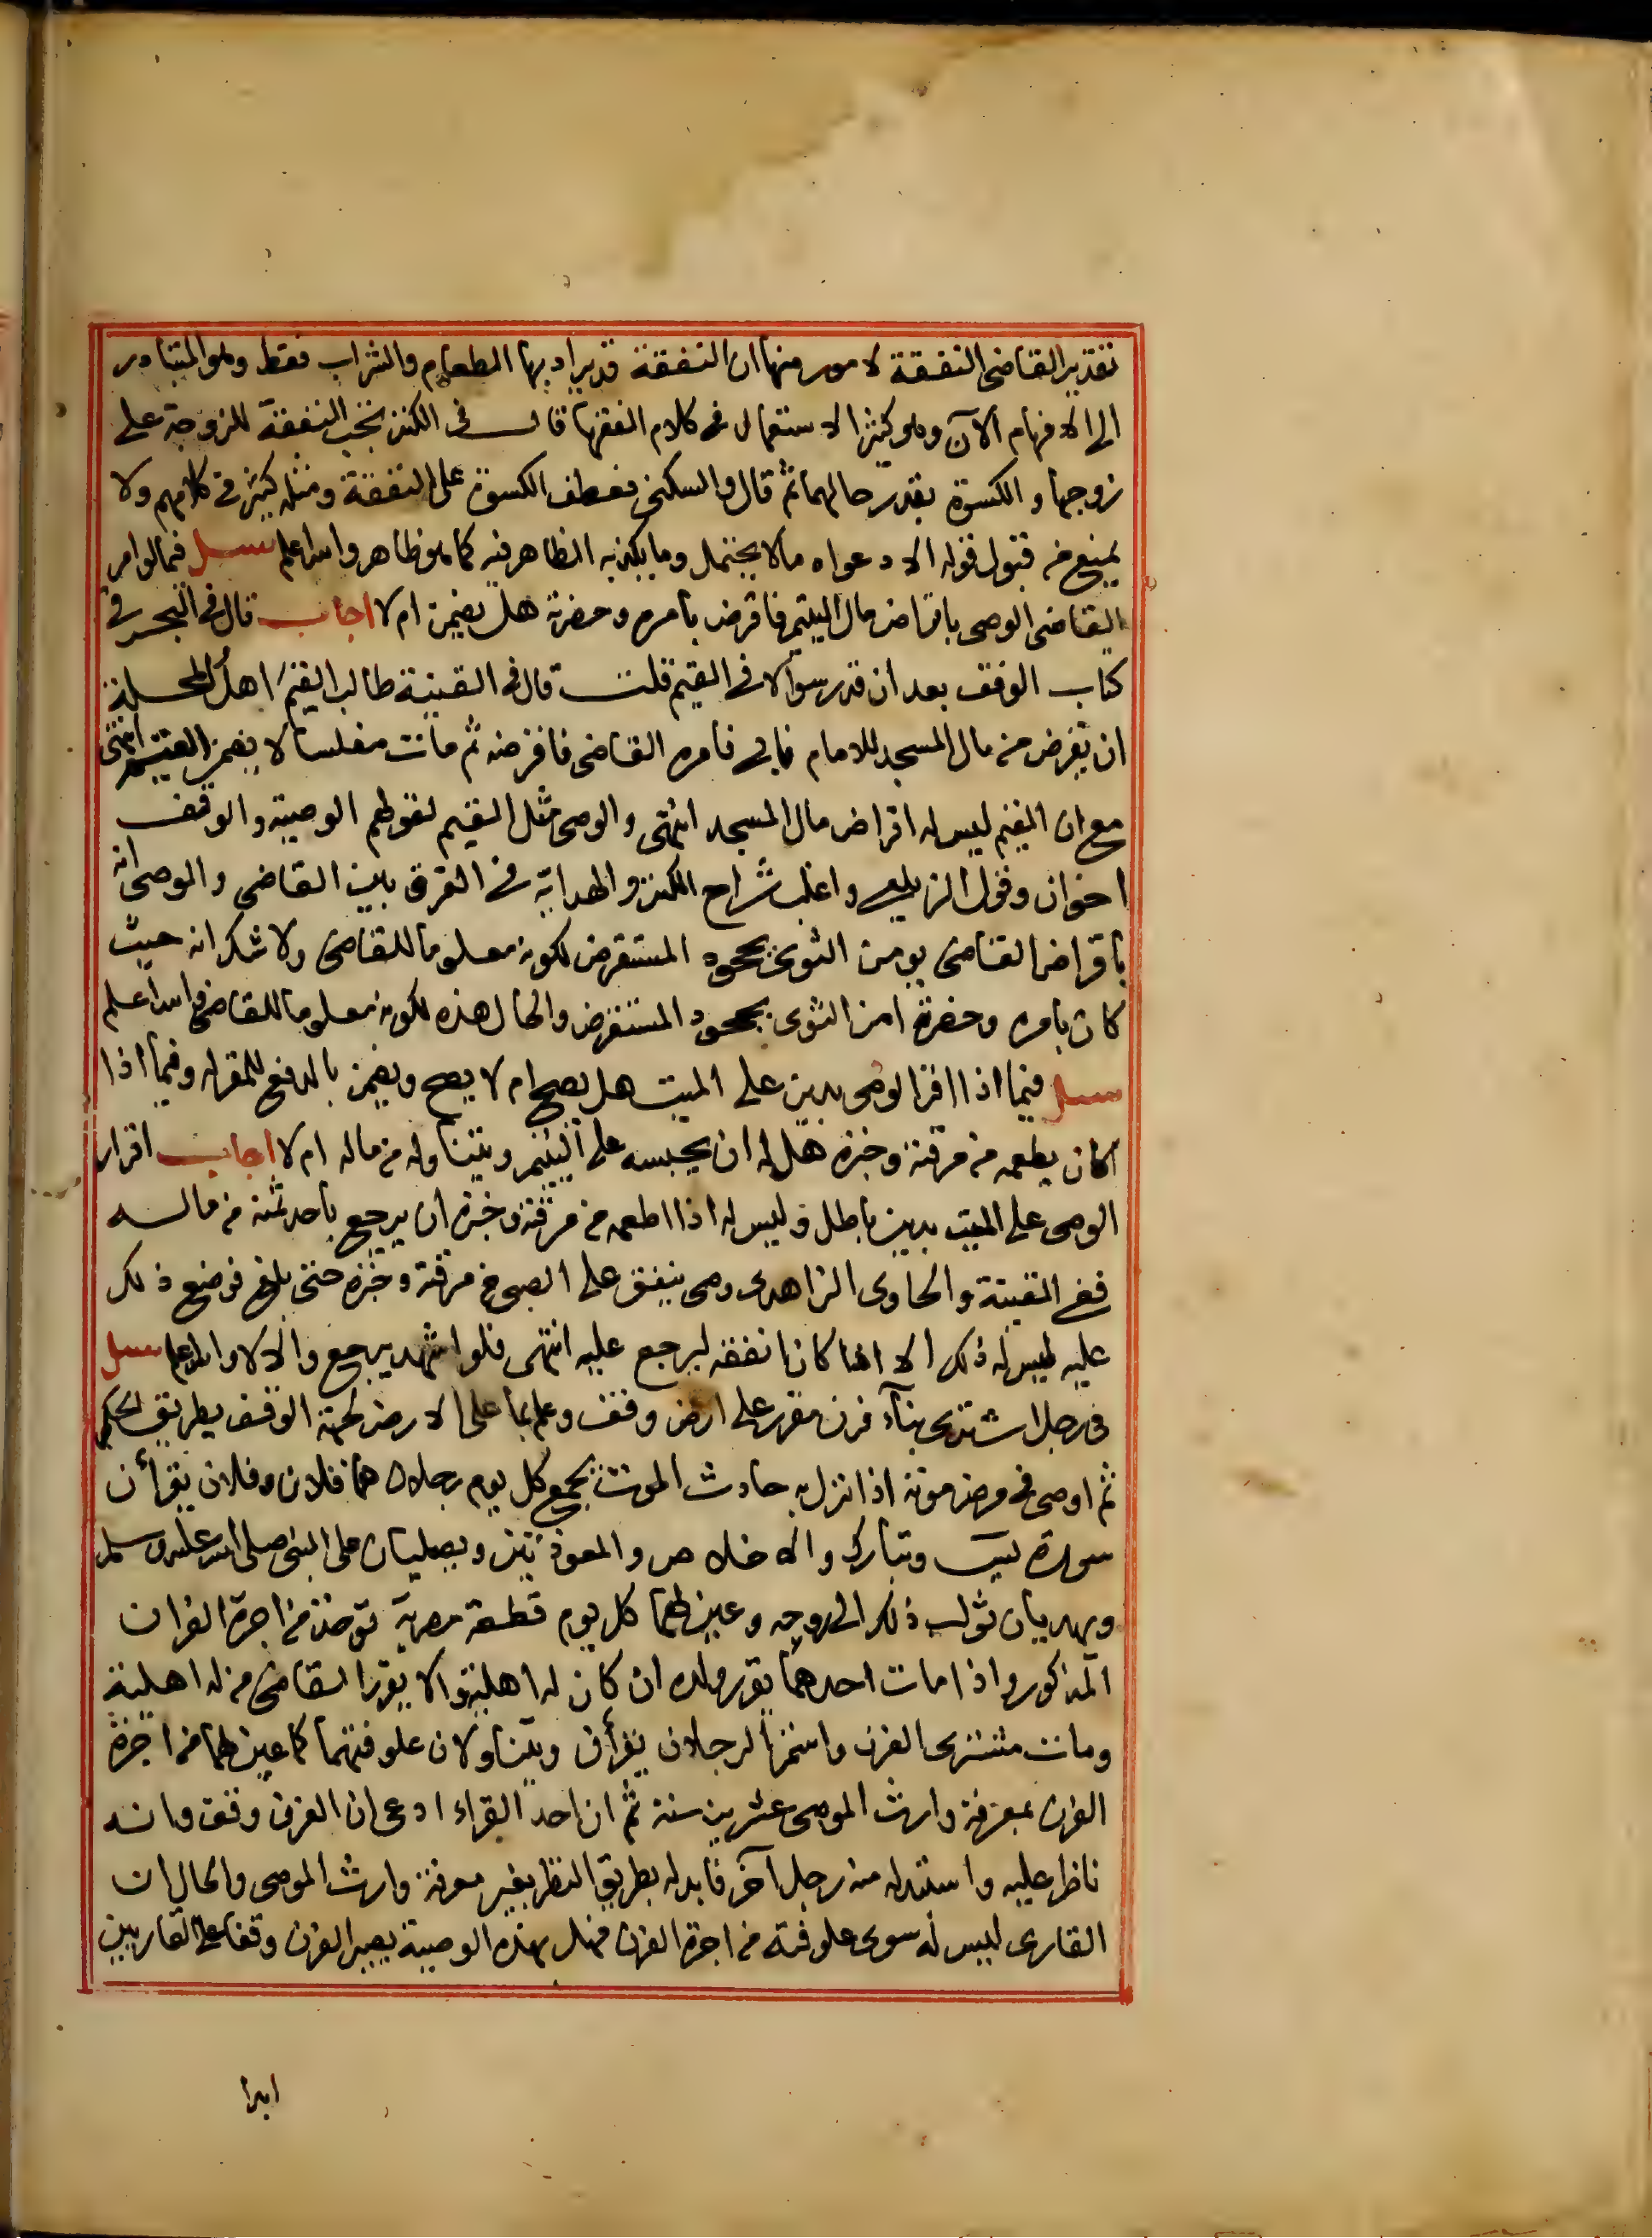 تقدير القاضى النفقة لامور منها ان النفقة قد يراد بها الطعام والشراب فقط وهو المتبادر
الى الافهام الآن وهو كثير الاستعمال فى كلام الفقها قال فى الكنز تجب النفقة للزوجة على
زوجها والكسوة بقدر حالهما ثم قال والسكنى فعطف الكسوة على النفقة ومثله كثير فى كلامهم ولا
يمنع من قبول قوله الا دعواه مالا يحتمل وما يكذبه الظاهر فيه كما هو ظاهر والله اعلم سئل فيما لو امر
القاضى الوصى باقراض مال اليتيم فاقرض بامره وحضرته هل يضمن ام لا اجاب قال فى البحر فى
كتاب الوقف بعد ان قدر سوالا فى القيم قلت قال فى القنية طالب القيم اهل المحلة
ان يقرض من مال المسجد للامام فابى فامره القاضى فاقرضه ثم مات مفلسا لا يضمن القيم انتهى
مع ان القيم ليس له اقراض مال المسجد انتهى والوصى مثل القيم لقولهم الوصية والوقف
اخوان وقول الزيلعى واغلب شراح الكنز والهداية فى الفرق بين القاضى والوصى انه
باقراض القاضى يومن التوى بجحود المستقرض لكونه معلوما للقاضى ولا شك انه حيث
كان بامره وحضرته امن التوى بجحود المستقرض والحال هذه لكونه معلوما للقاضى والله اعلم
سئل فيما اذا اقر الوصى بدين على الميت هل يصح ام لا يصح ويضمن بالدفع للمقر له وفيما اذا
كان يطعمه من مرقته وخبزه هل له ان يحبسه على اليتيم ويتناوله من ماله ام لا اجاب اقرار
الوصى على الميت بدين باطل وليس له اذا اطعمه من مرقته وخبزه ان يرجع باحد ثمنه من ماله
ففى القنية والحاوى الزاهدى وصى ينفق على الصبى من مرقته وخبزه حتى بلغ فوضع ذلك
عليه ليس له ذلك الا اذا كان انفقه ليرجع عليه انتهى فلو اشهد يرجع والا لا والله اعلم سئل
فى رجل اشترى بناء فرن مقرر على ارض وقف وعلم بما على الارض لجهة الوقف بطريق الحكر
ثم اوصى فى مرض موته اذا نزل به حادث الموت يجمع كل يوم رجلان هما فلان وفلان يقرأن
سورة يس وتبارك والاخلاص والمعوذتين ويصليان على النبى صلى الله عليه وسلم
ويهديان ثواب ذلك الى روحه وعين لهما كل يوم قطعة مصرية توخذ من اجرة الفران
المذكور واذا مات احدهما يقرر ولده ان كان له اهلية والا يقرر القاضى من له اهلية
ومات مشترى الفرن واستمر الرجلان يقرأن ويتناولان علوفتهما كما عين لهما من اجرة
الفرن بمعرفة وارث الموصى عشرين سنة ثم ان احد القراء ادعى ان الفرن وقف وانه
ناظر عليه واستبدله منه رجل آخر فابدله بطريق النظر بغير معرفة وارث الموصى والحال ان
القارى ليس له سوى علوفته من اجرة الفرن فهل بهذه الوصية يصير الفرن وقفا على القاريين
ابدا